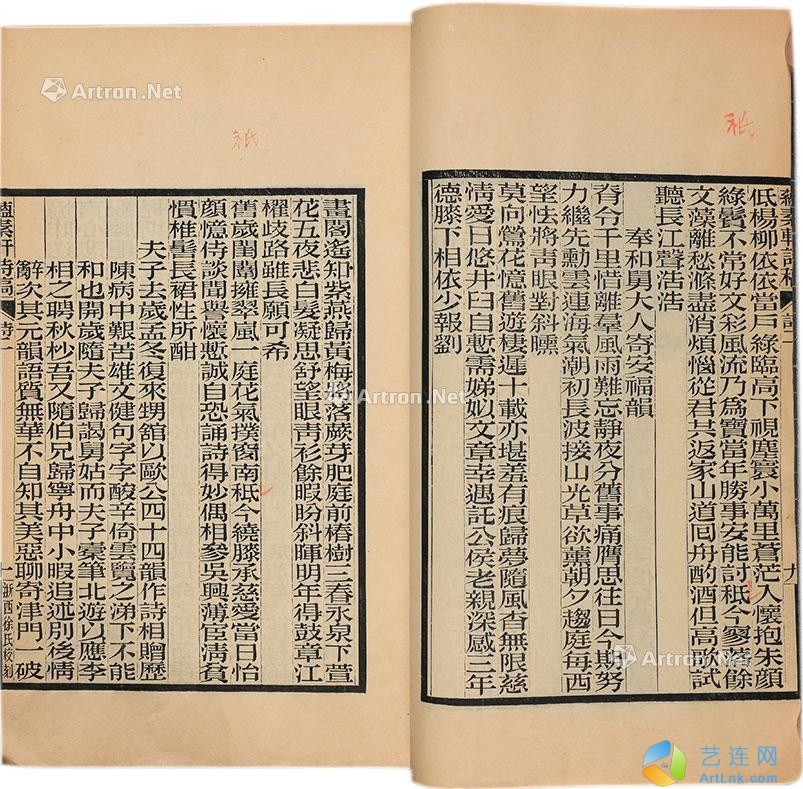 低楊柳依依當戶綠臨高下視塵寰小萬里蒼茫入懷抱朱顏
綠鬢不常好文彩風流乃爲寶當年勝事安能討秖今寥落餘
文藻離愁滌盡消煩惱從君共返家山道囘舟酌酒但高歌試
聽長江聲浩浩
奉和舅大人寄安福韻
脊令千里惜離羣風雨難忘靜夜分舊事痛譍思往日今期努
力繼先勳雲連海氣潮初長波接山光草欲薰朝夕趨庭每西
望怯將靑眼對斜曛
莫向鶯花憶舊遊棲遲十載亦堪羞有痕歸夢隨風杳無限慈
情愛日悠井臼自慙需娣姒文章幸遇託公侯老親深感三年
德膝下相依少報劉
晝閣遙知紫燕歸黃梅將落蕨芽肥庭前椿樹三春永泉下萱
花五夜悲白髮凝思舒望眼靑衫餘暇盼斜暉明年得鼓章江
櫂歧路雖長願可希
舊歲閨闈擁翠嵐一庭花氣撲窗南秖今繞膝承慈愛當日怡
顏憶侍談聞譽懷慙誠自恐誦詩得妙偶相參吳興薄宦淸貧
慣椎髻長裙性所酣
夫子去歲孟冬復來甥舘以歐公四十四韻作詩相贈歷
陳病中艱苦雄文健句字字酸辛倚雲覽之涕下不能
和也開歲隨夫子歸謁舅姑而夫子槖筆北遊以應李
相之聘秋杪吾又隨伯兄歸寧舟中小暇追述別後情
辭次其元韻語質無華不自知其美惡聊寄津門一破
蘊素軒詩稿
詩一
九
蘊素軒詩稿
詩一
浙西徐氏校刻
秖
秖
Artron.Net
Artron.Net
Artron.Net
艺连网
ArtLnk.com